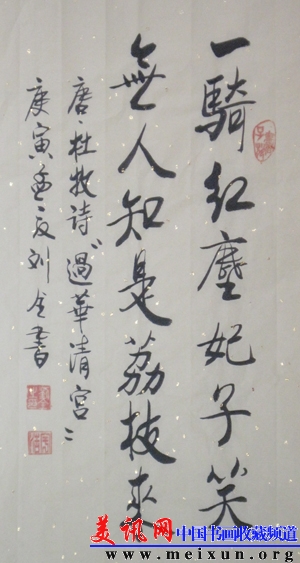 一騎紅塵妃子笑
無人知是荔枝來
唐·杜牧詩"過華清宮"
庚寅孟夏刘書
美讯网 中国书画收藏频道
www.meixun.org